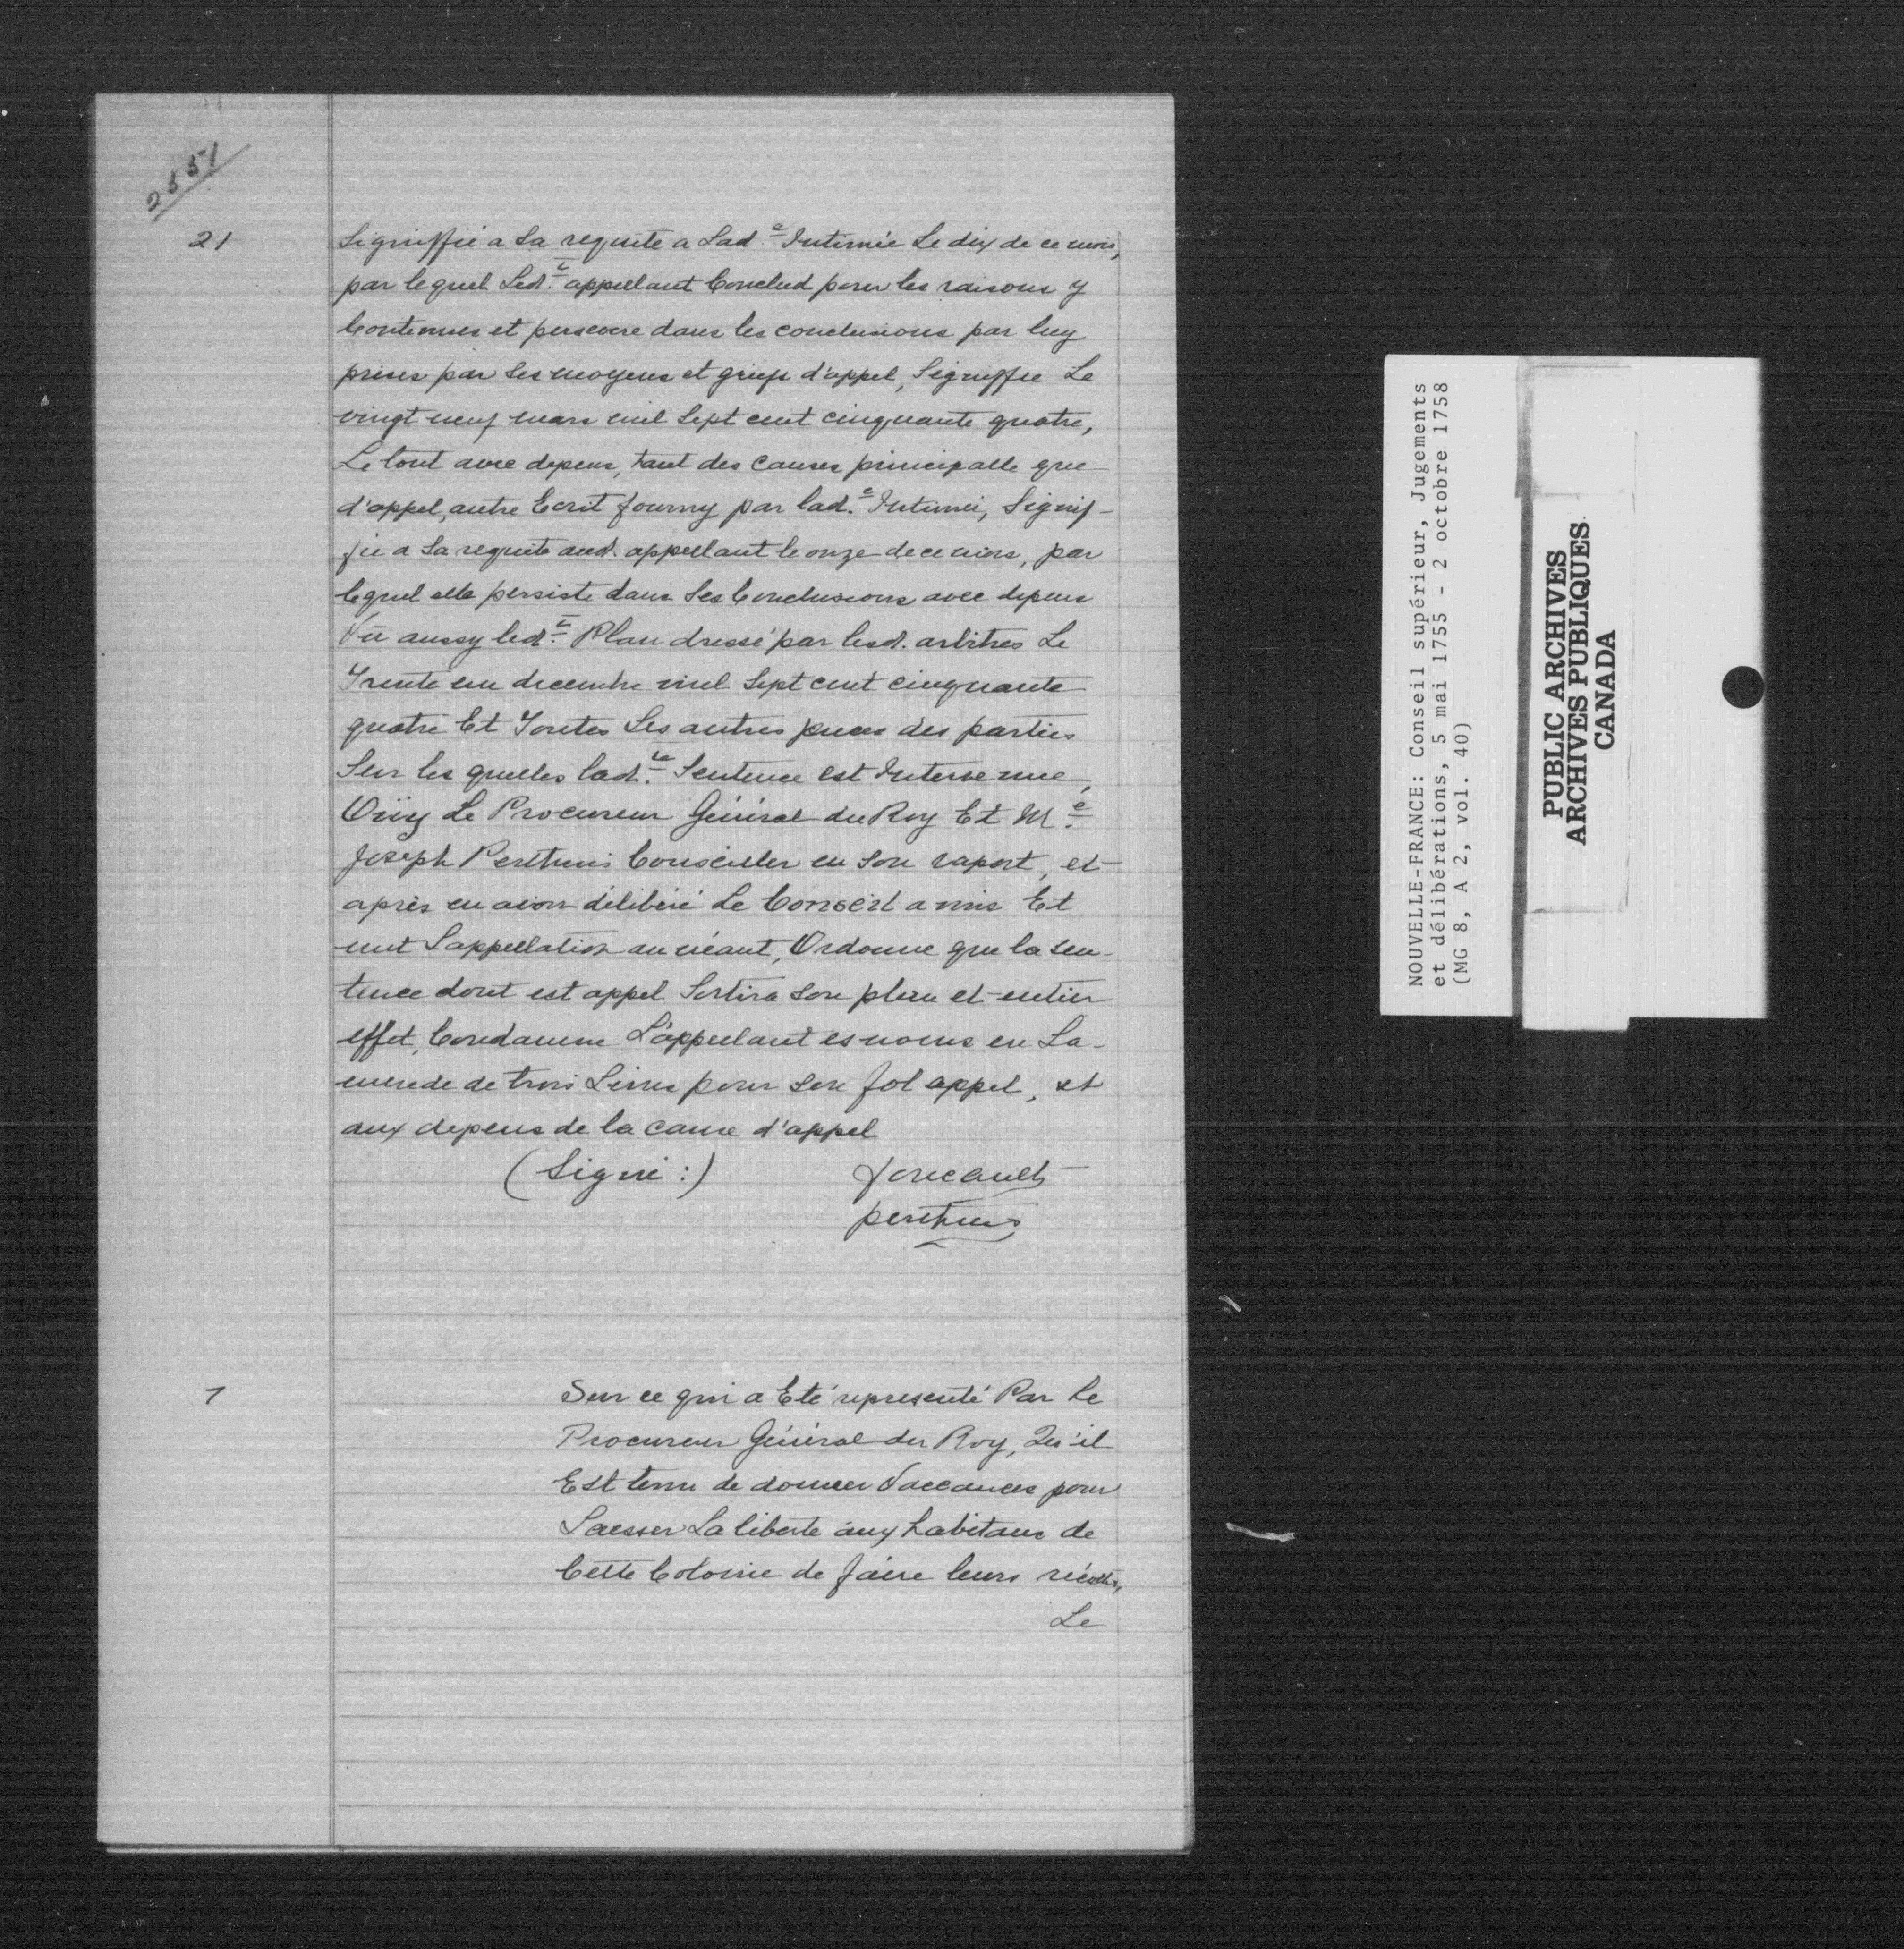 2551
21
Signiffié a Sa requête a Lad.e Intimée Le dix de ce mois,
par lequel Led.t appellant Conclud pour les raisons y
Contenues et persevere dans les conclusions par luy
prises par Ses moyens et griefs d'appel, Signiffié Le
vingt neuf mars mil Sept cent cinquante quatre,
Le tout avec depens, tant des Causes principalle que
d'appel, autre Ecrit fourny par lad.e Intimée, Signif-
fié a Sa requête aud. appellant le onze de ce mois, par
lequel elle persiste dans Ses Conclusions avec depens
Vû aussy led.t Plan dressé par lesd. arbitres Le
Trente un decembre mil Sept cent cinquante
quatre Et Toutes Les autres pieces des parties
Sur les quelles lad.te Sentence est Intervenue,
Oüiy Le Procureur Général du Roy Et M.e
Joseph Perthuis Conseiller en Son raport, et
après en avoir délibéré Le Conseil a mis Et
met L'appellation au néant, Ordonne que la sen-
tence dont est appel Sortira Son plein et entier
effet, Condamne L'appellant es noms en La-
mende de trois Livres pour Son fol appel, et
aux depens de la cause d'appel
(Signé :) foucault
perthuis
1
Sur ce qui a Eté représenté Par Le
Procureur Général du Roy, Qu'il
Est tems de donner Vaccances pour
Laisser La liberté aux habitans de
Cette Colonie de faire leurs récoltes,
Le
NOUVELLE-FRANCE: Conseil supérieur, Jugements
et délibérations, 5 mai 1755 - 2 octobre 1758
(MG 8, A 2, vol. 40)
PUBLIC ARCHIVES
ARCHIVES PUBLIQUES
CANADA